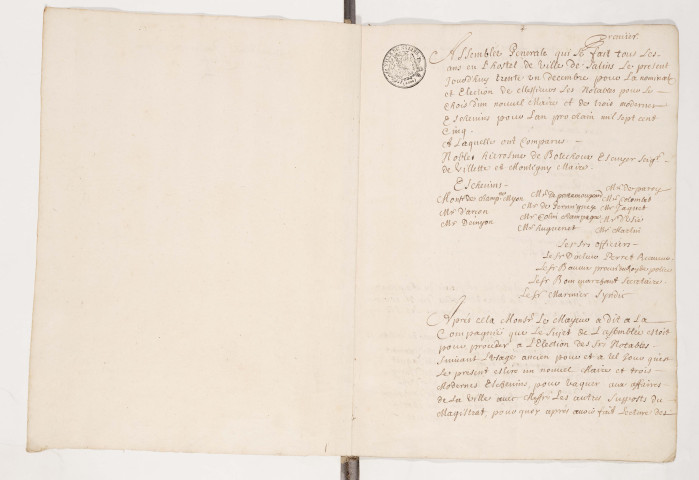 Premier.
Assemblee Generale qui se fait tous les
ans en L'hostel de Ville de Salins Le present
Jourdhuy trente un decembre pour La nominaôn
et Election de Messieurs Les Notables pour le
Choix d'un nouveil Maire et de trois modernes
Eschevins pour L'an prochain mil sept cent
Cinq.
A Laquelle ont Comparus
Noble hierosme de Botechoux Escuyer Seigr
de Villette et Montigny Maire.
Eschevins
Monsr de Myon
Mr Varion
Mr Demyon
Mr de
Mr de
Mr Colin Champagne
Mr Huguenet
Mr desparey
Mr Colombet
Mr Jaquet
Mr
Mr
Les Srs officiers
Le Sr Perret
Le Sr
Le Sr Bon marchant Secretaire
Le Sr Marmier Syndic
Apres cela Monsr Le Mayeur a dit a La
Compagnie que Le Sujet de L'assemblee estoit
pour proceder a L'Election des Srs Notables
Suivant L'usage ancien pour et a tel Jour qu'est
Le present eslire un nouveil Maire et trois
Modernes Eschevins, pour vaquer aux affaires
de La Ville avec Messrs Les autres Suposts du
Magistrat, pourquoy apres avoir fait Lecture des